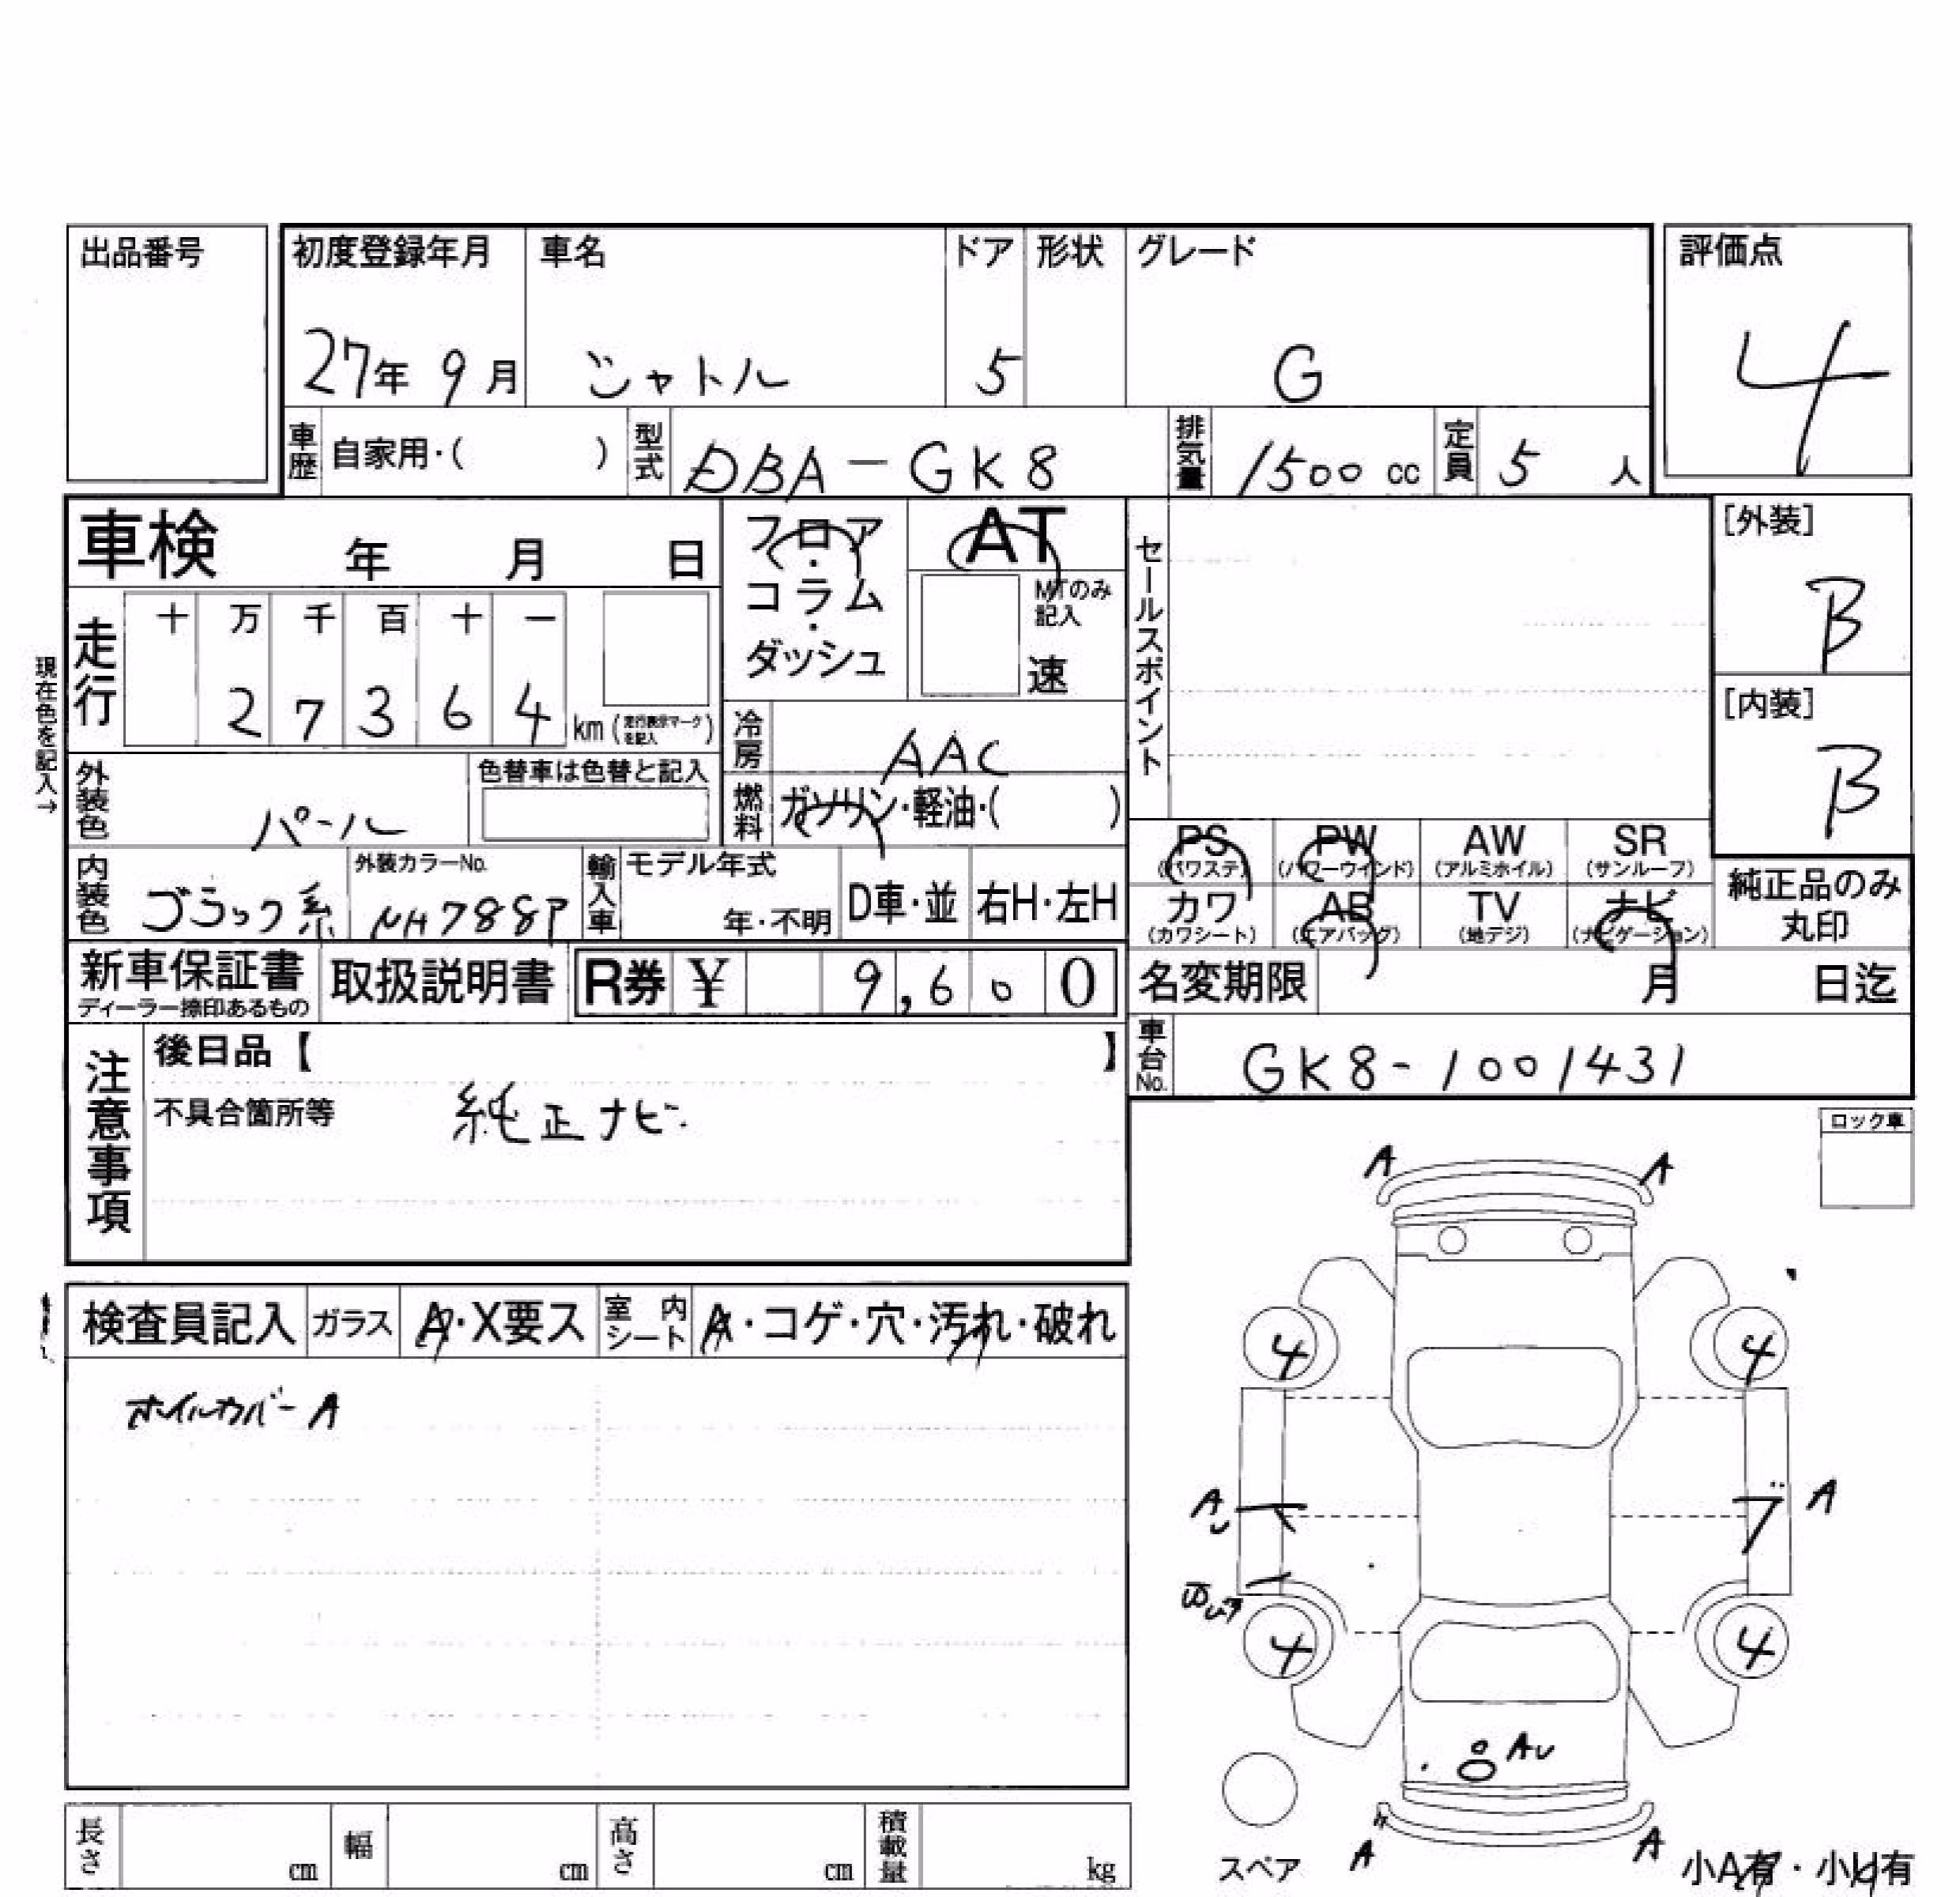 出品番号
初度登録年月 車名 ドア 形状 グレード 評価点
27年 9月 シャトル 5 G 4
車歴 自家用・( ) 型式 DBA-GK8 排気量 1500 cc 定員 5 人
車検 年 月 日 フロア・コラム・ダッシュ AT
MTのみ記入
速
セールスポイント
[外装]
B
[内装]
B
現在色を記入→
走行 十 万 千 百 十 一
2 7 3 6 4 km (走行表示マークを記入)
冷房 AAC
外装色 パール 色替車は色替と記入
燃料 ガソリン・軽油・( )
PS (パワステ) PW (パワーウインド) AW (アルミホイル) SR (サンルーフ)
カワ (カワシート) AB (エアバッグ) TV (地デジ) ナビ (ナビゲーション)
純正品のみ丸印
内装色 ブラック系 外装カラーNo. NH788P 輸入車 モデル年式 年・不明 D車・並 右H・左H
新車保証書 ディーラー捺印あるもの 取扱説明書 R券 ¥ 9,600
名変期限 月 日迄
車台No. GK8-1001431
注意事項
後日品【 】
不具合箇所等 純正ナビ
ロック車
A A
検査員記入 ガラス A・X要ス 室内シート A・コゲ・穴・汚れ・破れ
ホイルカバーA
4 4
A
4 4
AU
A A
スペア
小A有・小U有
長さ cm 幅 cm 高さ cm 積載量 kg